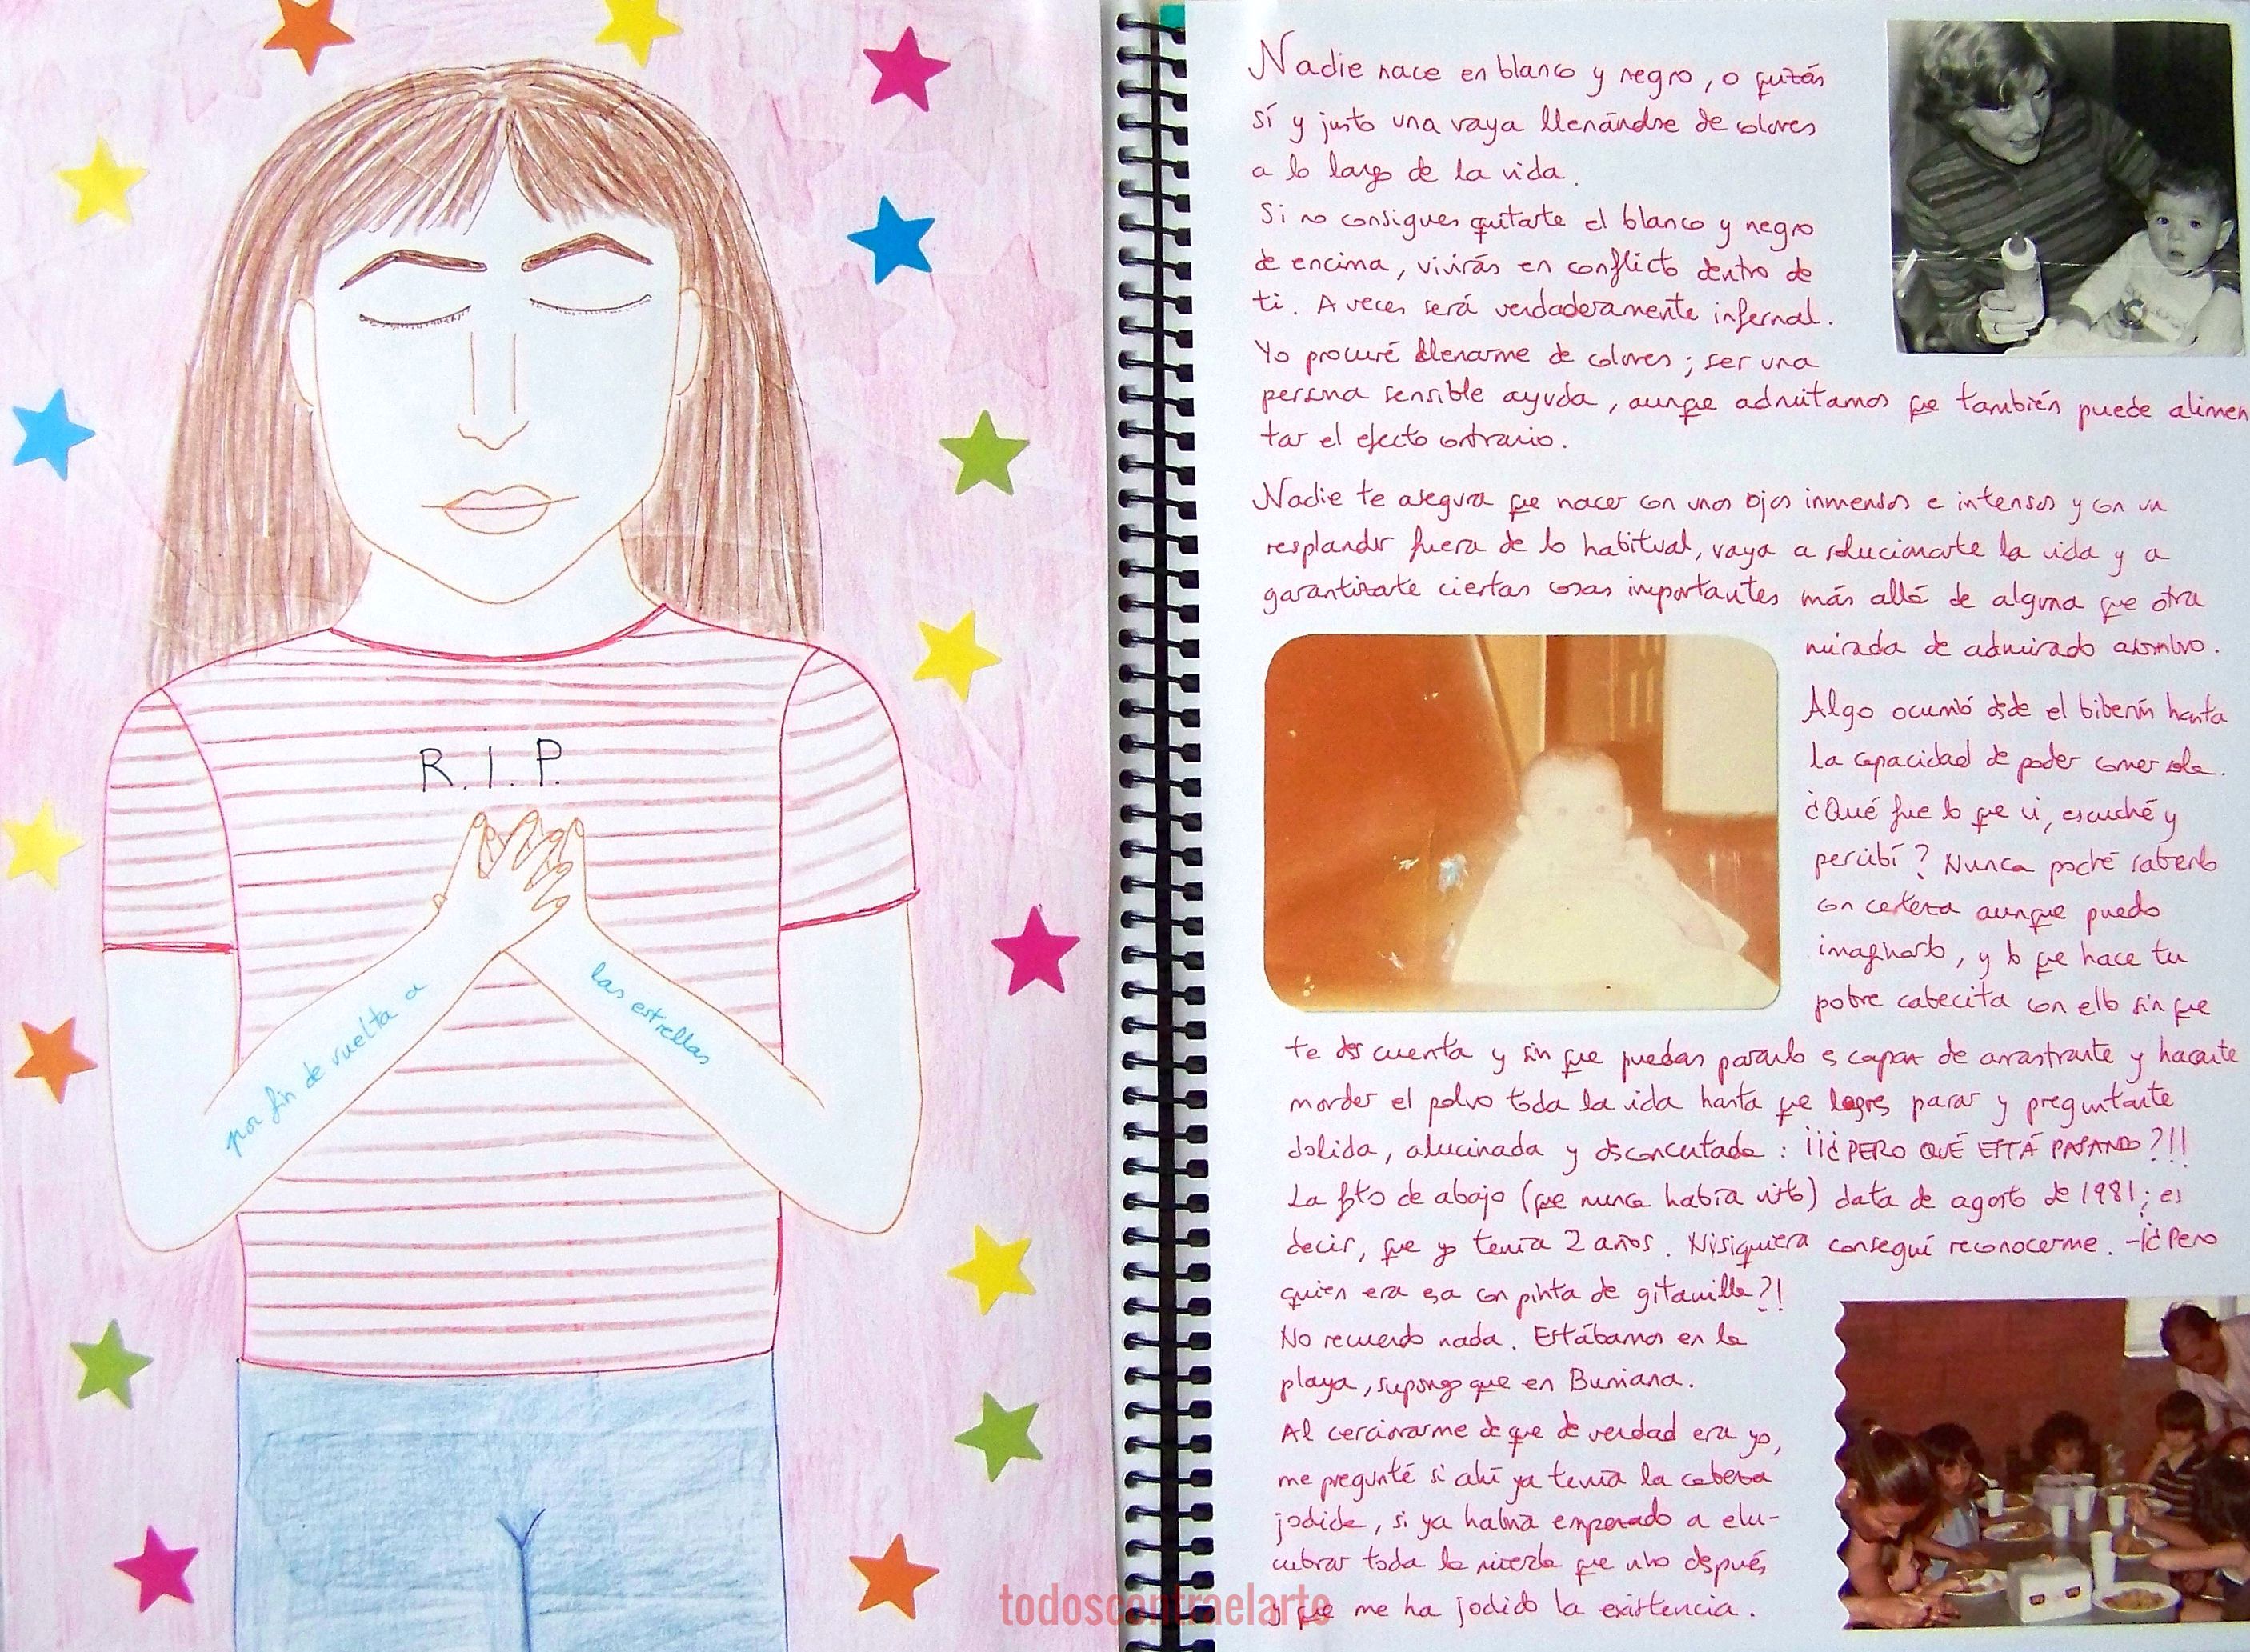 R.I.P.
por fin de vuelta a
las estrellas
Nadie nace en blanco y negro, o quizás
sí y justo una vaya llenándose de colores
a lo largo de la vida.
Si no consigues quitarte el blanco y negro
de encima, vivirás en conflicto dentro de
ti. A veces será verdaderamente infernal.
Yo procuré llenarme de colores; ser una
persona sensible ayuda, aunque admitamos que también puede alimen
tar el efecto contrario.
Nadie te asegura que nacer con unos ojos inmensos e intensos y con un
resplandor fuera de lo habitual, vaya a solucionarte la vida y a
garantizarte ciertas cosas importantes más allá de alguna que otra
mirada de admirado asombro.
Algo ocurrió desde el biberón hasta
la capacidad de poder comer sola.
¿Qué fue lo que vi, escuché y
percibí? Nunca podré saberlo
con certeza aunque puedo
imaginarlo, y lo que hace tu
pobre cabecita con ello sin que
te des cuenta y sin que puedas pararlo es capaz de arrastrarte y hacerte
morder el polvo toda la vida hasta que logres parar y preguntarte
dolida, alucinada y desconcertada: ¡¡¿PERO QUÉ ESTÁ PASANDO?!!
La foto de abajo (que nunca había visto) data de agosto de 1981; es
decir, que yo tenía 2 años. Nisiquiera conseguí reconocerme. -¡¿Pero
quien era esa con pinta de gitanilla?!
No recuerdo nada. Estábamos en la
playa, supongo que en Burriana.
Al cerciorarme de que de verdad era yo,
me pregunté si ahí ya tenía la cabeza
jodida, si ya había empezado a elu-
cubrar toda la mierda que vino después
y que me ha jodido la existencia.
todoscontraelarte